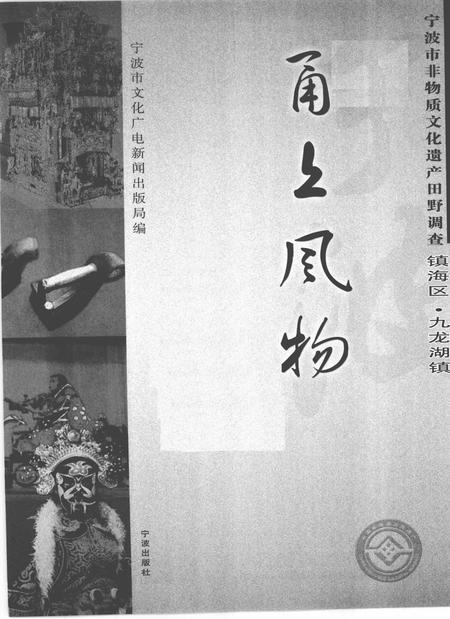 宁波市非物质文化遗产田野调查
镇海区·九龙湖镇
甬上风物
宁波市文化广电新闻出版局编
宁波出版社